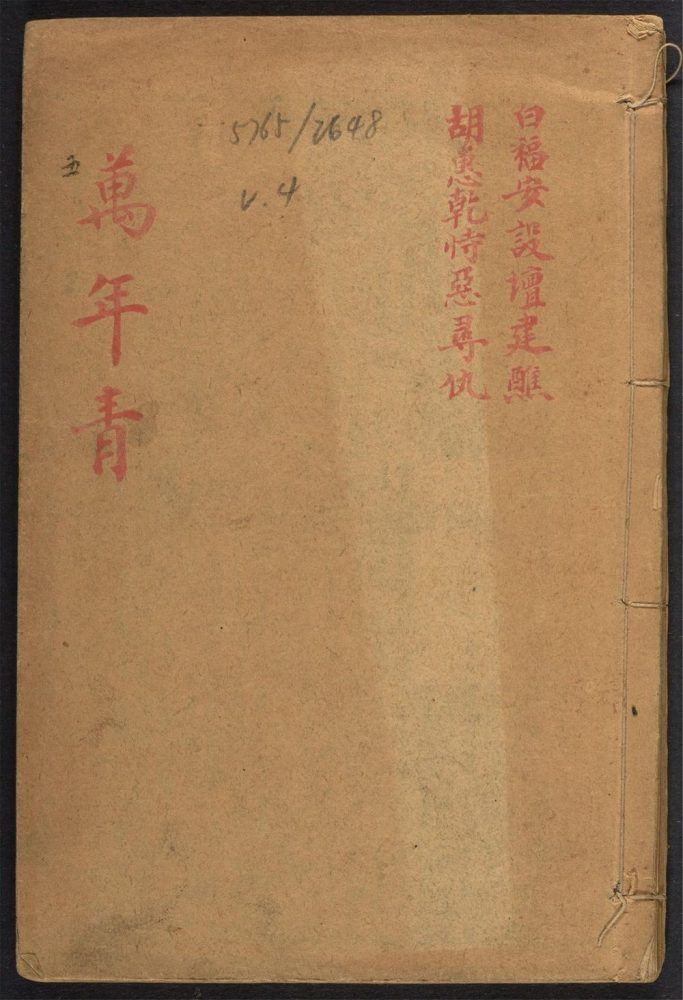 白福安設壇建醮
胡惠乾恃惡尋仇
5765/2648
v.4
萬年青
五